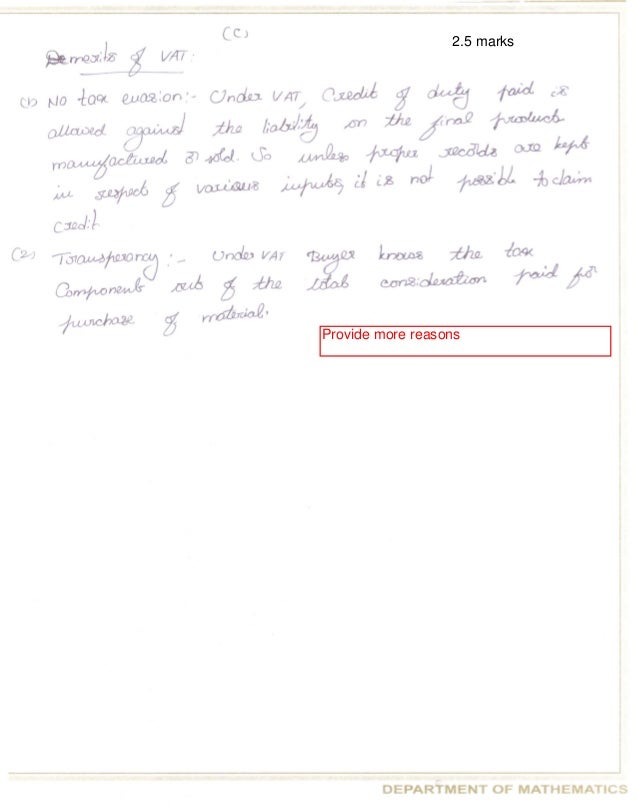 (C)
2.5 marks
merits of VAT:
(1) No tax evasion:- Under VAT, Credit of duty paid is
allowed against the liability on the final product
manufactured or sold. So unless proper records are kept
in respect of various inputs, it is not possible to claim
credit
(2) Transperancy:- Under VAT Buyer knows the tax
Component out of the total consideration paid for
purchase of material.
Provide more reasons
DEPARTMENT OF MATHEMATICS